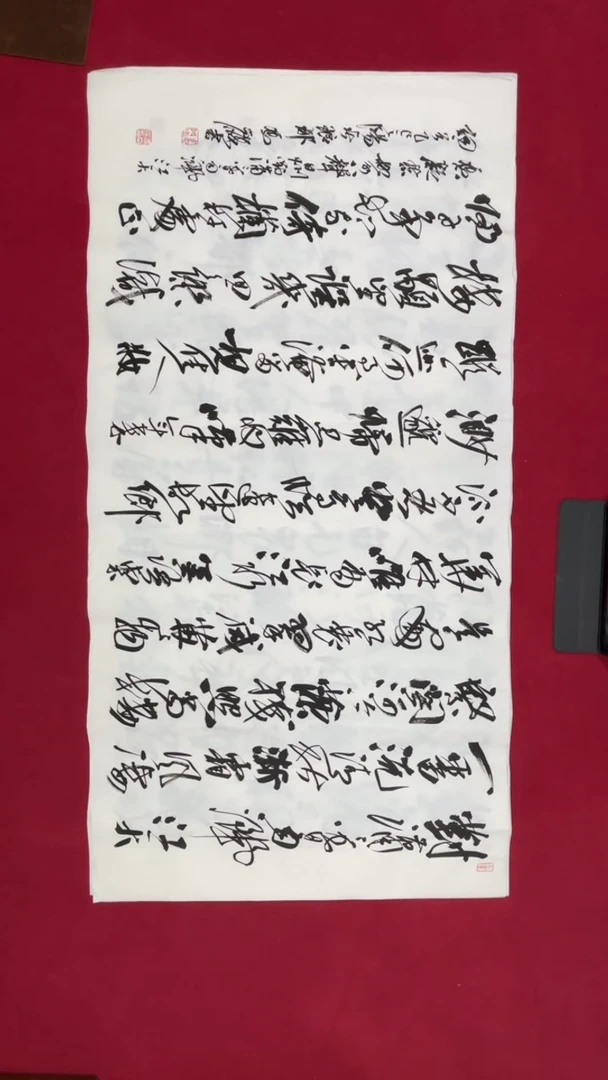 對瀟瀟暮雨灑江天
一番洗清秋漸霜風淒
緊關河冷落殘照當樓
是處紅衰翠減苒苒物
華休惟有長江水無語東
流不忍登高臨遠望故鄉
渺邈歸思難收嘆年來
蹤跡何事苦淹留想佳人妝
樓顒望誤幾回天際識
歸舟爭知我倚欄杆處正
恁凝愁 八聲甘州對瀟瀟暮雨灑江天
詞 乙巳 書